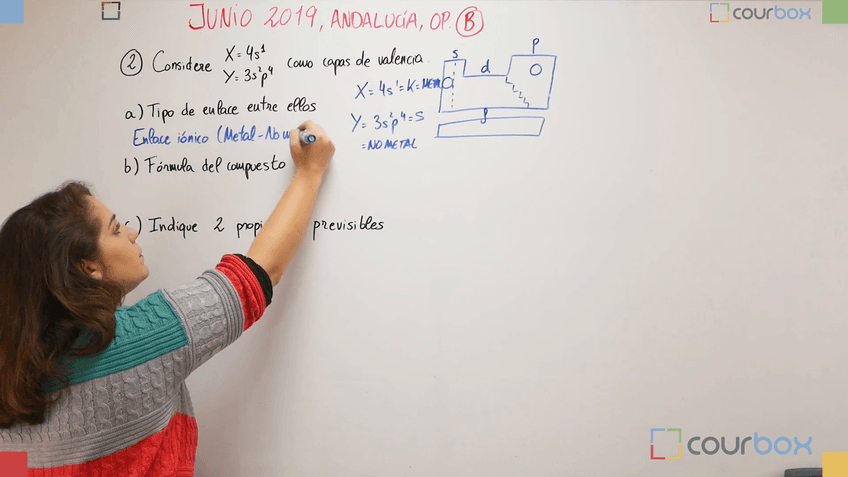 JUNIO 2019, ANDALUCÍA, OP. B
courbox
2) Considere X = 4s¹ como capas de valencia.
Y = 3s²p⁴
a) Tipo de enlace entre ellos
Enlace iónico (Metal-No m
b) Fórmula del compuesto
c) Indique 2 propi previsibles
X = 4s¹ = K = METAL
Y = 3s²p⁴ = S
= NO METAL
s
d
p
f
courbox